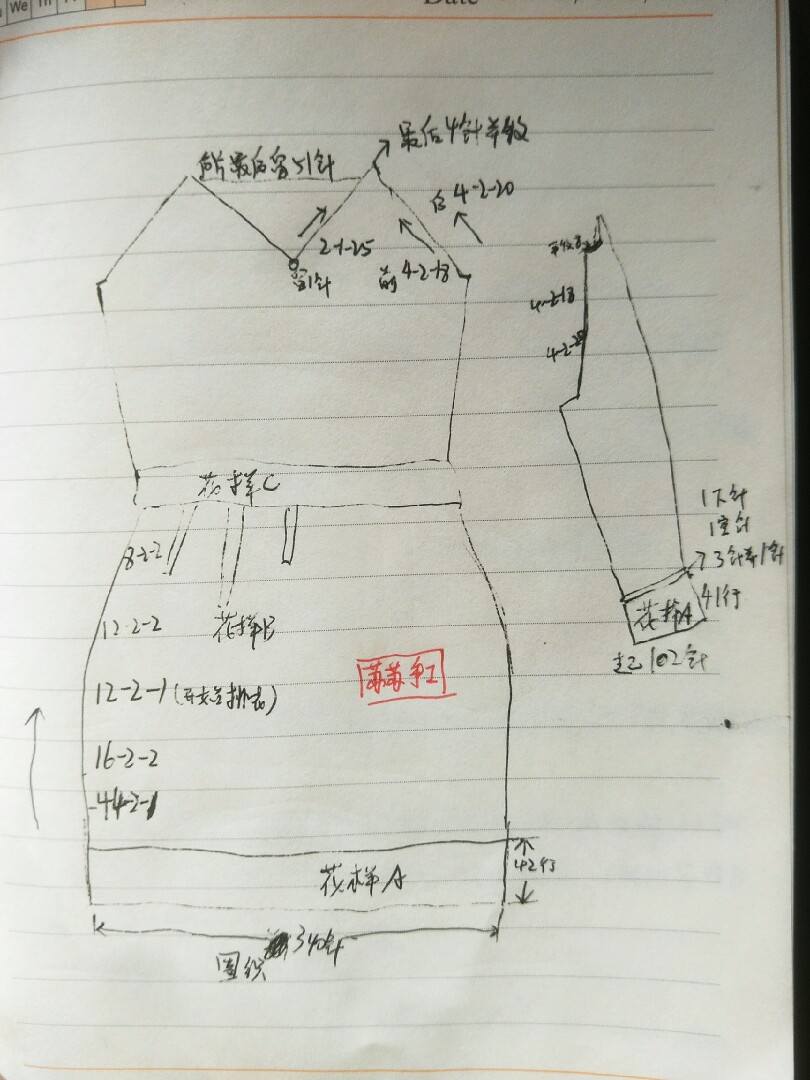 We
Date
最后4针并收
后片最后留51针
后4-2-20
2-1-25
留1针
前4-2-18
4-2-18
4-2-20
花样C
8-2-2
1下针
1空针
3针并1针
41行
12-2-2
花样B
花样A
起102针
苒苒手工
12-2-1
16-2-2
44-2-1
42行
花样A
340针
圈织